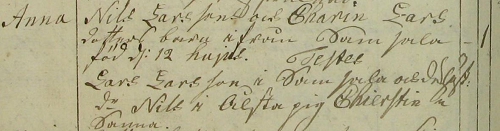 Anna Nils Larssons och Charin Lars
dotters barn ifrån Samsala - 1
född d: 12 hujus. Testes
Lars Larsson i Samsala
dr Nils i Ålsta pig Chierstin i
Sanna.